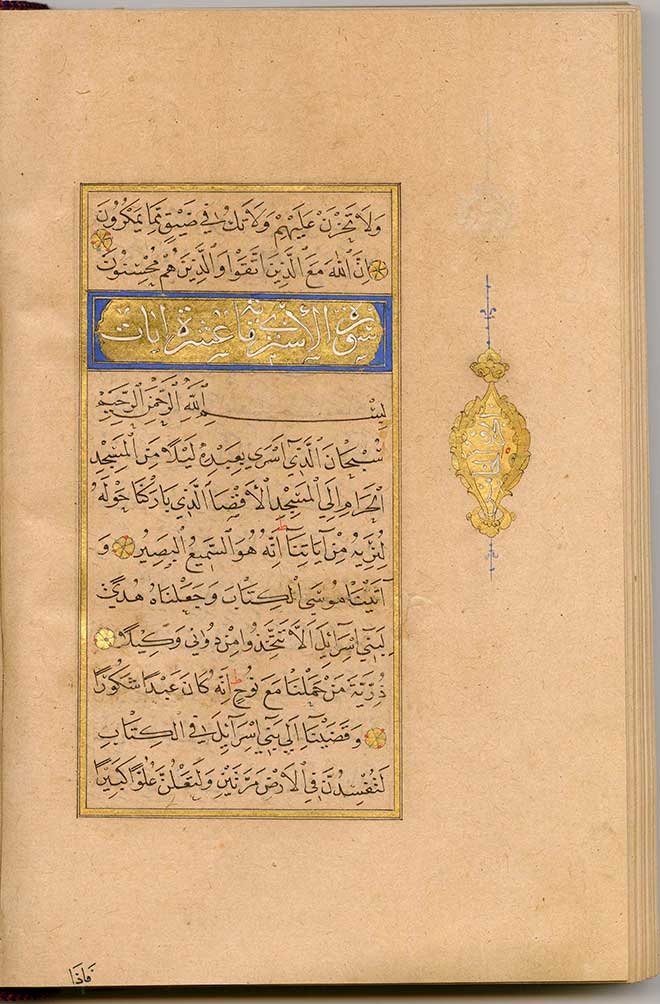 وَلَا تَحْزَنْ عَلَيْهِمْ وَلَا تَكُ فِي ضَيْقٍ مِمَّا يَمْكُرُونَ
إِنَّ اللَّهَ مَعَ الَّذِينَ اتَّقَوْا وَالَّذِينَ هُمْ مُحْسِنُونَ
سورة الأسرى مائة عشرة آيات
بِسْمِ اللَّهِ الرَّحْمٰنِ الرَّحِيمِ
سُبْحَانَ الَّذِي أَسْرَى بِعَبْدِهِ لَيْلًا مِنَ الْمَسْجِدِ
الْحَرَامِ إِلَى الْمَسْجِدِ الْأَقْصَا الَّذِي بَارَكْنَا حَوْلَهُ
لِنُرِيَهُ مِنْ آيَاتِنَا ط إِنَّهُ هُوَ السَّمِيعُ الْبَصِيرُ وَ
آتَيْنَا مُوسَى الْكِتَابَ وَجَعَلْنَاهُ هُدًى
لِبَنِي إِسْرَائِلَ أَلَّا تَتَّخِذُوا مِنْ دُونِي وَكِيلًا
ذُرِّيَّةَ مَنْ حَمَلْنَا مَعَ نُوحٍ ط إِنَّهُ كَانَ عَبْدًا شَكُورًا
وَقَضَيْنَا إِلَى بَنِي إِسْرَائِلَ فِي الْكِتَابِ
لَتُفْسِدُنَّ فِي الْأَرْضِ مَرَّتَيْنِ وَلَتَعْلُنَّ عُلُوًّا كَبِيرًا
فَإِذَا